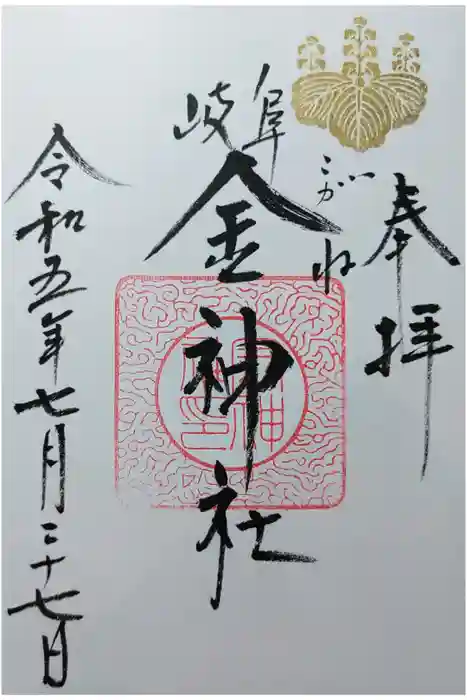 奉拝
岐阜
こがね
金神社
令和五年七月二十七日